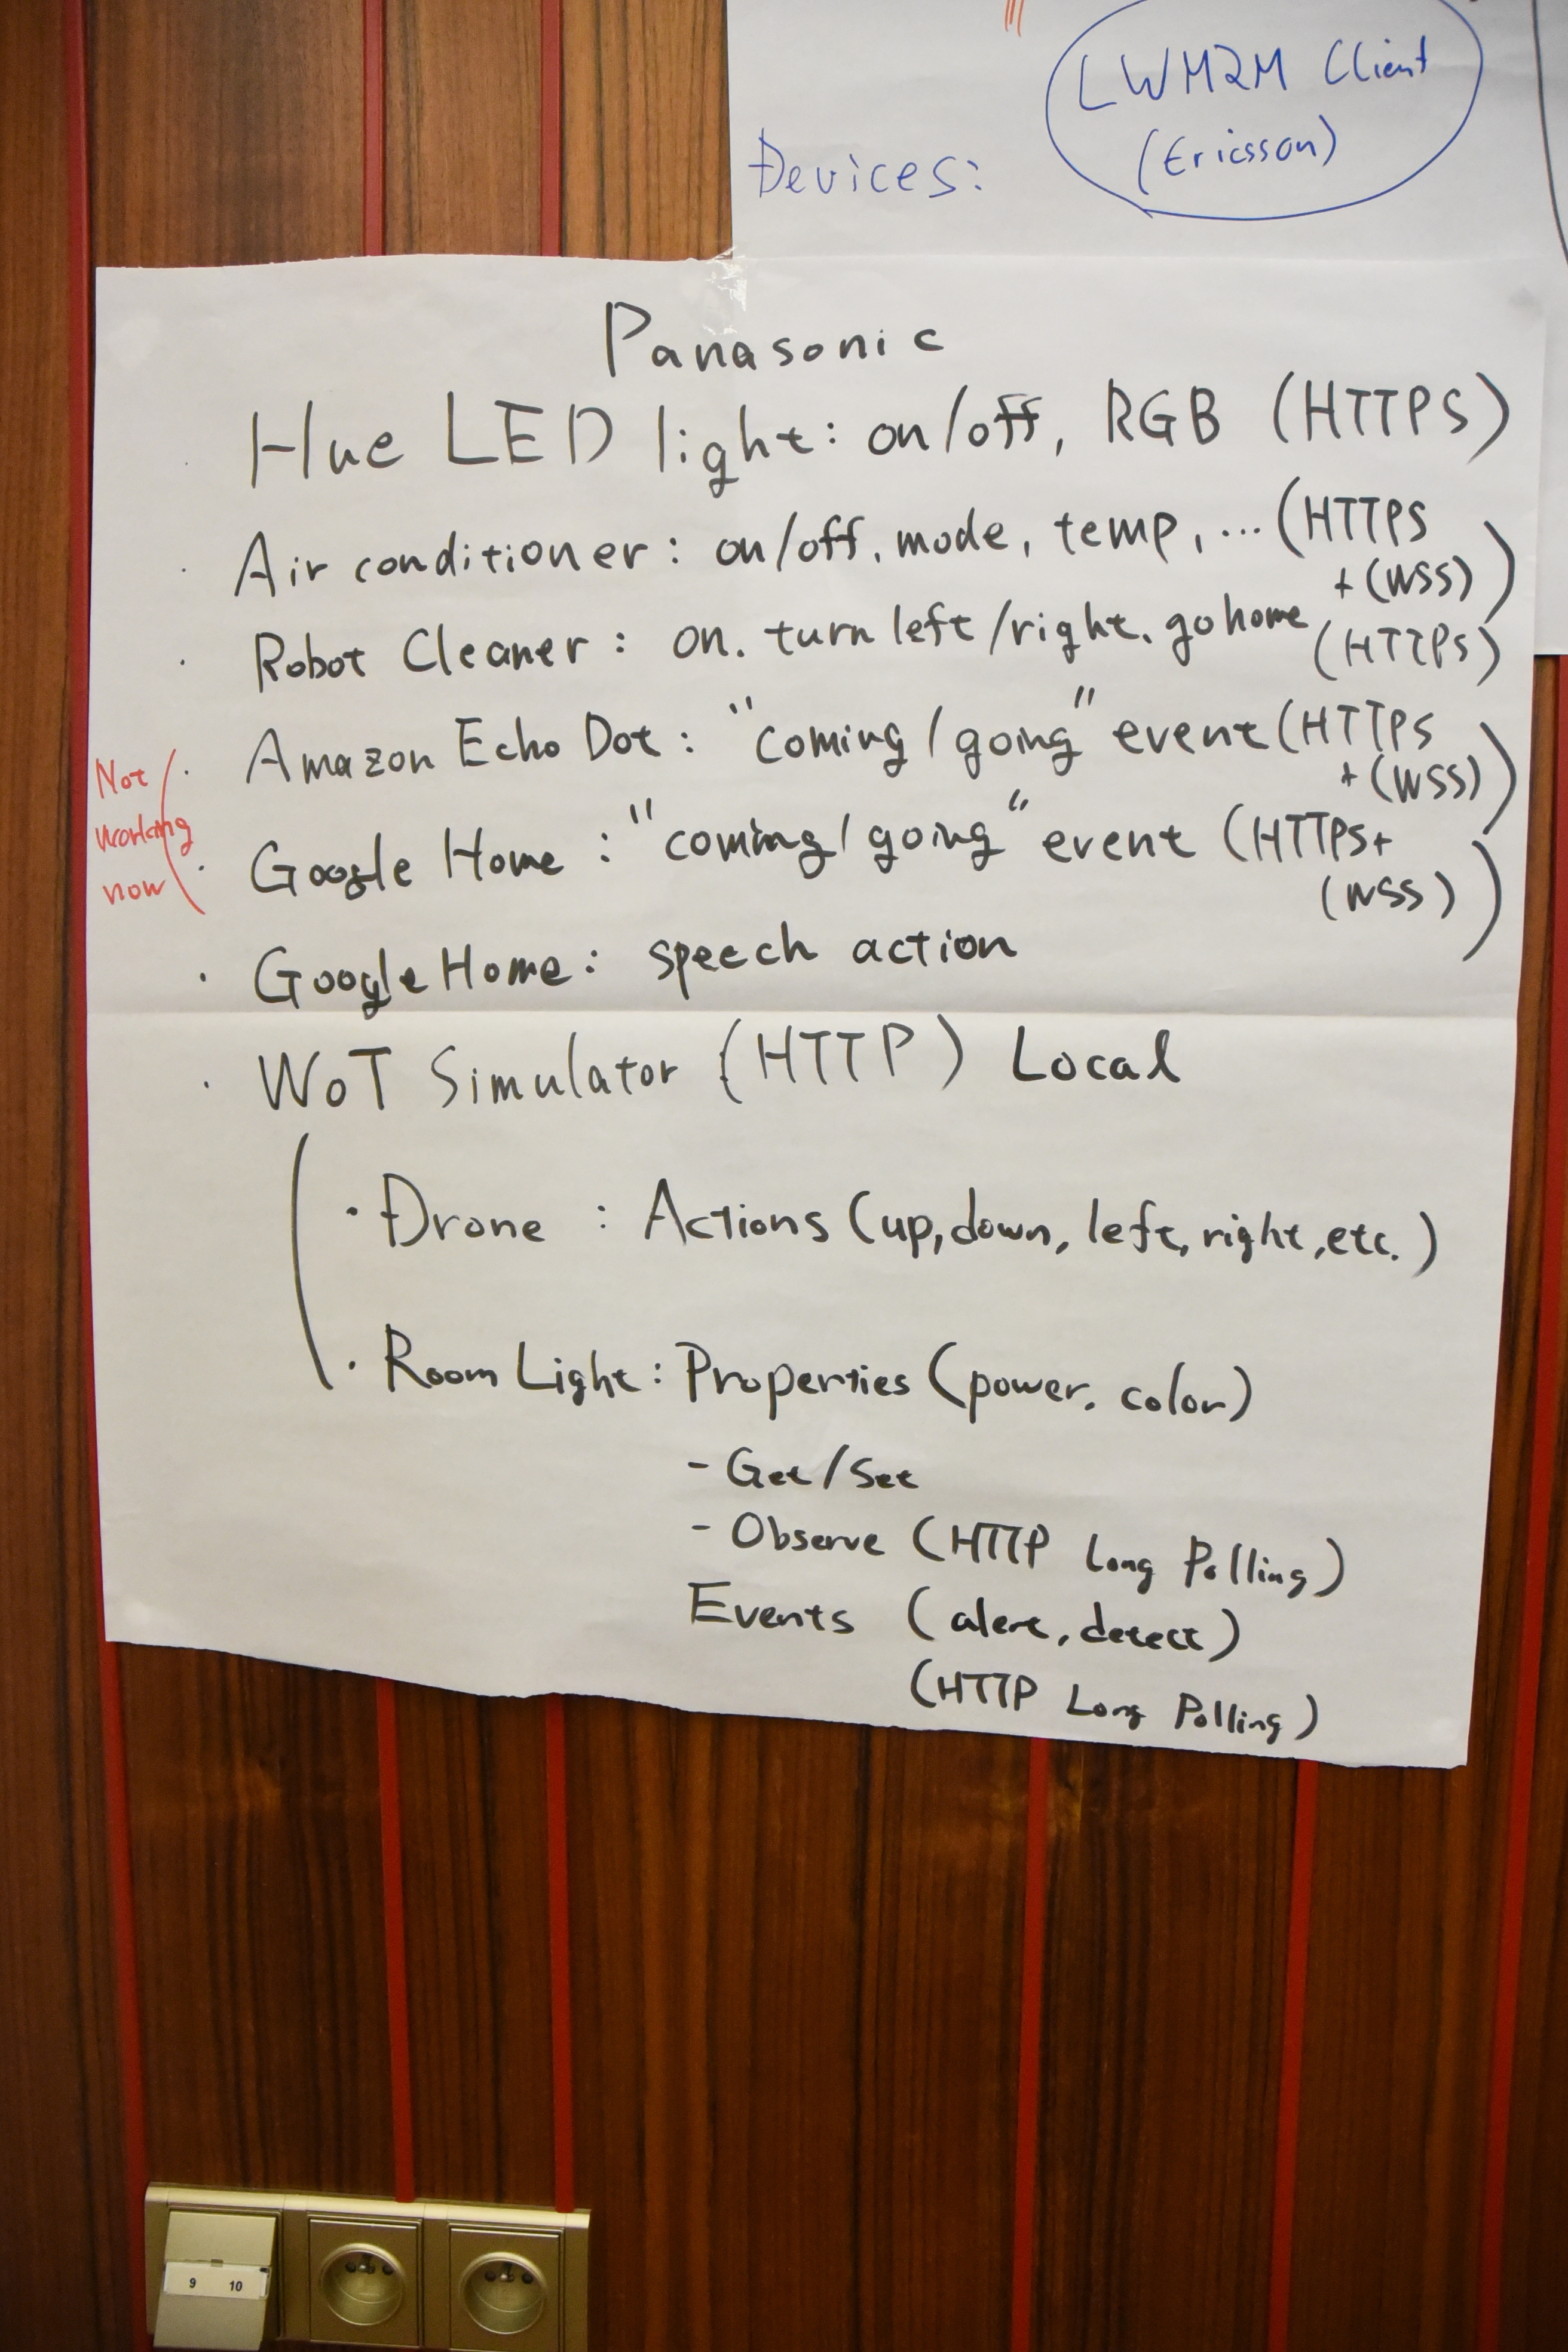 LWM2M Client
(Ericsson)
Devices:
Panasonic
· Hue LED light: on/off, RGB (HTTPS)
· Air conditioner: on/off, mode, temp, ... (HTTPS
+ (WSS))
· Robot Cleaner: on. turn left/right. go home
(HTTPS)
· Amazon Echo Dot: "coming/going" event (HTTPS
+ (WSS))
Not
working
now
· Google Home: "coming/going" event (HTTPS+
(WSS))
· Google Home: speech action
· WoT Simulator (HTTP) Local
· Drone: Actions (up, down, left, right, etc.)
· Room Light: Properties (power, color)
- Get/Set
- Observe (HTTP Long Polling)
Events (alert, detect)
(HTTP Long Polling)
9 10